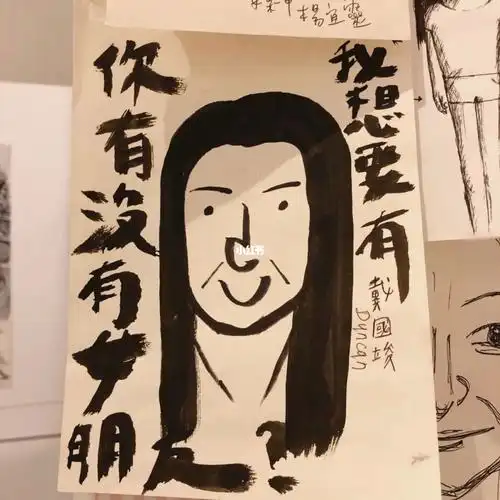 楊宜靈
你有沒有女朋友?
我想要有
戴國竣
Duncan
小红书